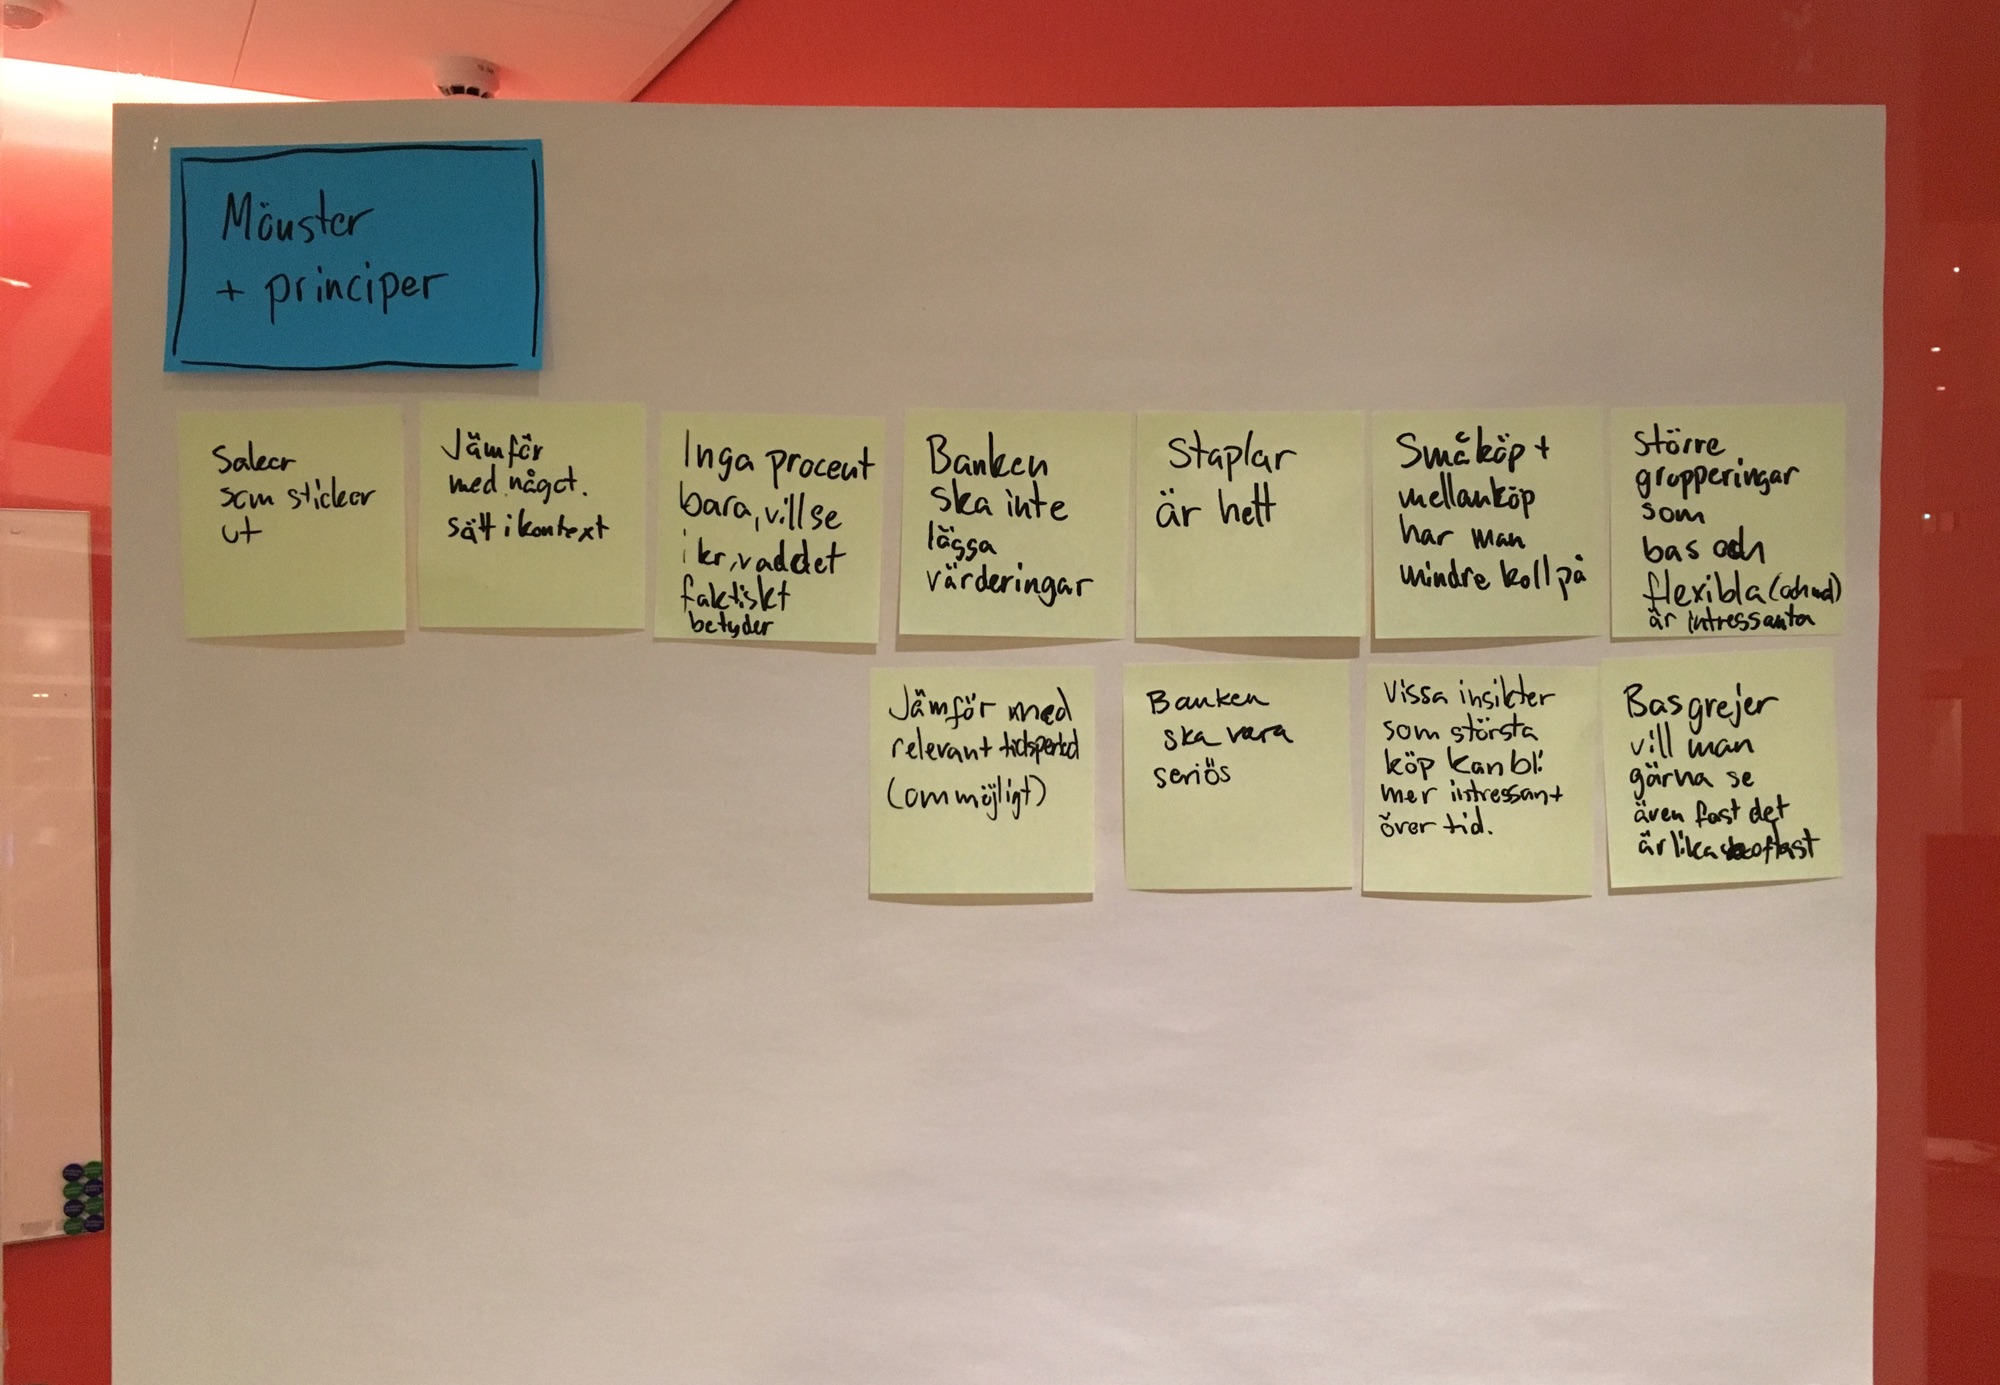 Mönster
+ principer
Saker
som sticker
ut
Jämför
med något.
sätt i kontext
Inga procent
bara, vill se
i kr, vad det
faktiskt
betyder
Banken
ska inte
lägga
värderingar
Staplar
är hett
Småköp +
mellanköp
har man
mindre koll på
Större
grupperingar
som
bas och
flexibla
är intressanta
Jämför med
relevant tidsperiod
(om möjligt)
Banken
ska vara
seriös
Vissa insikter
som största
köp kan bli
mer intressant
över tid.
Basgrejer
vill man
gärna se
även fast det
är lika oftast